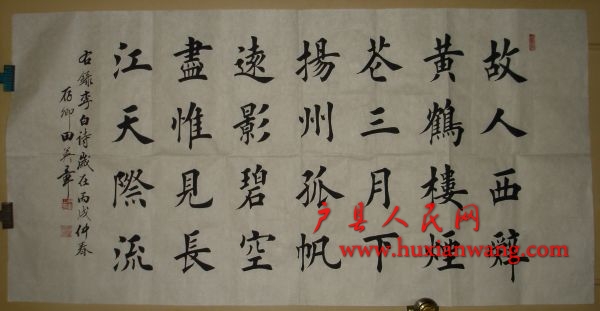 故人西辭
黄鶴樓煙
花三月下
揚州孤帆
遠影碧空
盡惟見長
江天際流
右録李白诗歲在丙戌仲春
存卿田英章
户县人民网
www.huxianwang.com